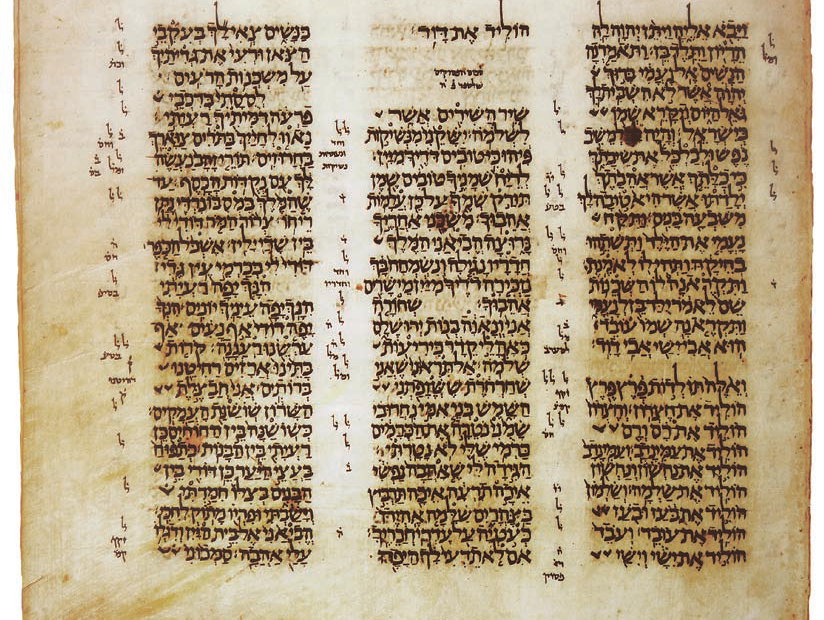 ויבא אליה ויתן יהוה לה
הריון ותלד בן ותאמרנה
הנשים אל נעמי ברוך
יהוה אשר לא השבית לך
גאל היום ויקרא שמו
בישראל והיה לך למשיב
נפש ולכלכל את שיבתך
כי כלתך אשר אהבתך
ילדתו אשר היא טובה לך
משבעה בנים ותקח
נעמי את הילד ותשתהו
בחיקה ותהי לו לאמנת
ותקראנה לו השכנות
שם לאמר ילד בן לנעמי
ותקראנה שמו עובד
הוא אבי ישי אבי דוד
ואלה תולדות פרץ פרץ
הוליד את חצרון וחצרון
הוליד את רם ורם
הוליד את עמינדב ועמינדב
הוליד את נחשון ונחשון
הוליד את שלמה ושלמון
הוליד את בעז ובעז
הוליד את עובד ועבד
הוליד את ישי וישי
הוליד את דוד
סכום הפסוקים
שלספר פ ה
שיר השירים אשר
לשלמה ישקני מנשיקות
פיהו כי טובים דדיך מיין
לריח שמניך טובים שמן
תורק שמך על כן עלמות
אהבוך משכני אחריך
נרוצה הביאני המלך
חדריו נגילה ונשמחה בך
נזכירה דדיך מיין מישרים
אהבוך שחורה
אני ונאוה בנות ירושלם
כאהלי קדר כיריעות
שלמה אל תראני שאני
שחרחרת ששזפתני
השמש בני אמי נחרו בי
שמני נטרה את הכרמים
כרמי שלי לא נטרתי
הגידה לי שאהבה נפשי
איכה תרעה איכה תרביץ
בצהרים שלמה אהיה
כעטיה על עדרי חבריך
אם לא תדעי לך היפה
בנשים צאי לך בעקבי
הצאן ורעי את גדיתיך
על משכנות הרעים
לססתי ברכבי
פרעה דמיתיך רעיתי
נאוו לחייך בתרים צוארך
בחרוזים תורי זהב נעשה
לך עם נקדות הכסף עד
שהמלך במסבו נרדי נתן
ריחו צרור המר דודי לי
בין שדי ילין אשכל הכפר
דודי לי בכרמי עין גדי
הנך יפה רעיתי
הנך יפה עיניך יונים הנך
יפה דודי אף נעים אף
ערשנו רעננה קרות
בתינו ארזים רחיטנו
ברותים אני חבצלת
השרון שושנת העמקים
כשושנה בין החוחים כן
רעיתי בין הבנות כתפוח
בעצי היער כן דודי בין
הבנים בצלו חמדתי
וישבתי ופריו מתוק לחכי
הביאני אל בית היין ודגלו
עלי אהבה סמכוני